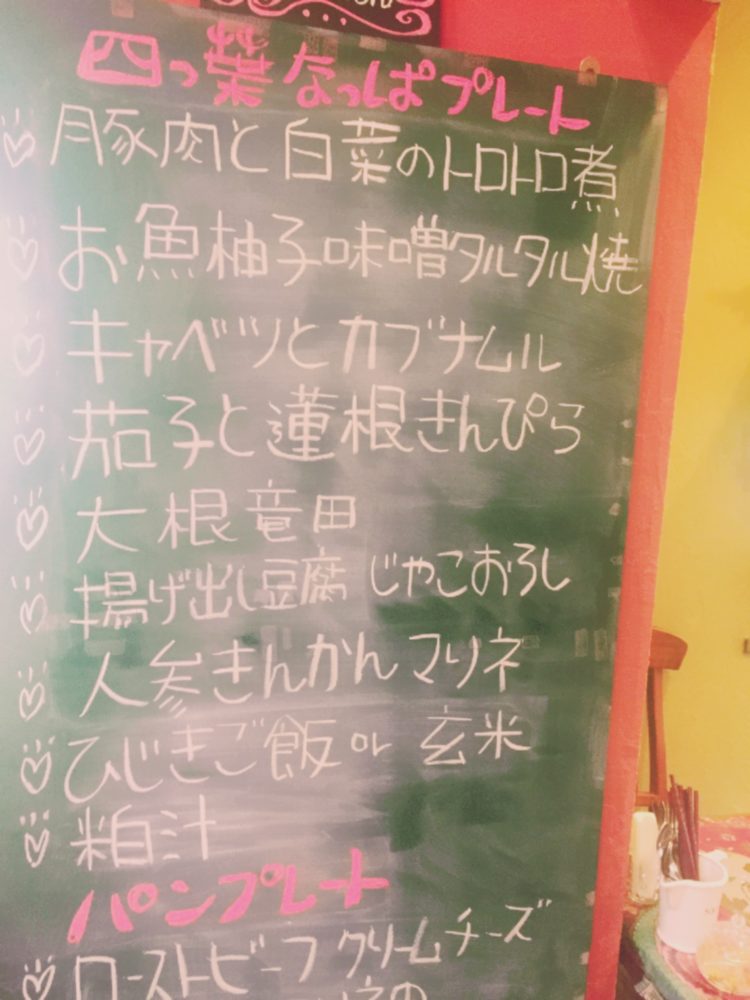 四つ葉なっぱプレート
豚肉と白菜のトロトロ煮
お魚柚子味噌タルタル焼
キャベツとカブナムル
茄子と蓮根きんぴら
大根竜田
揚げ出し豆腐 じゃこおろし
人参きんかんマリネ
ひじきご飯 or 玄米
粕汁
パンプレート
ローストビーフ クリームチーズ